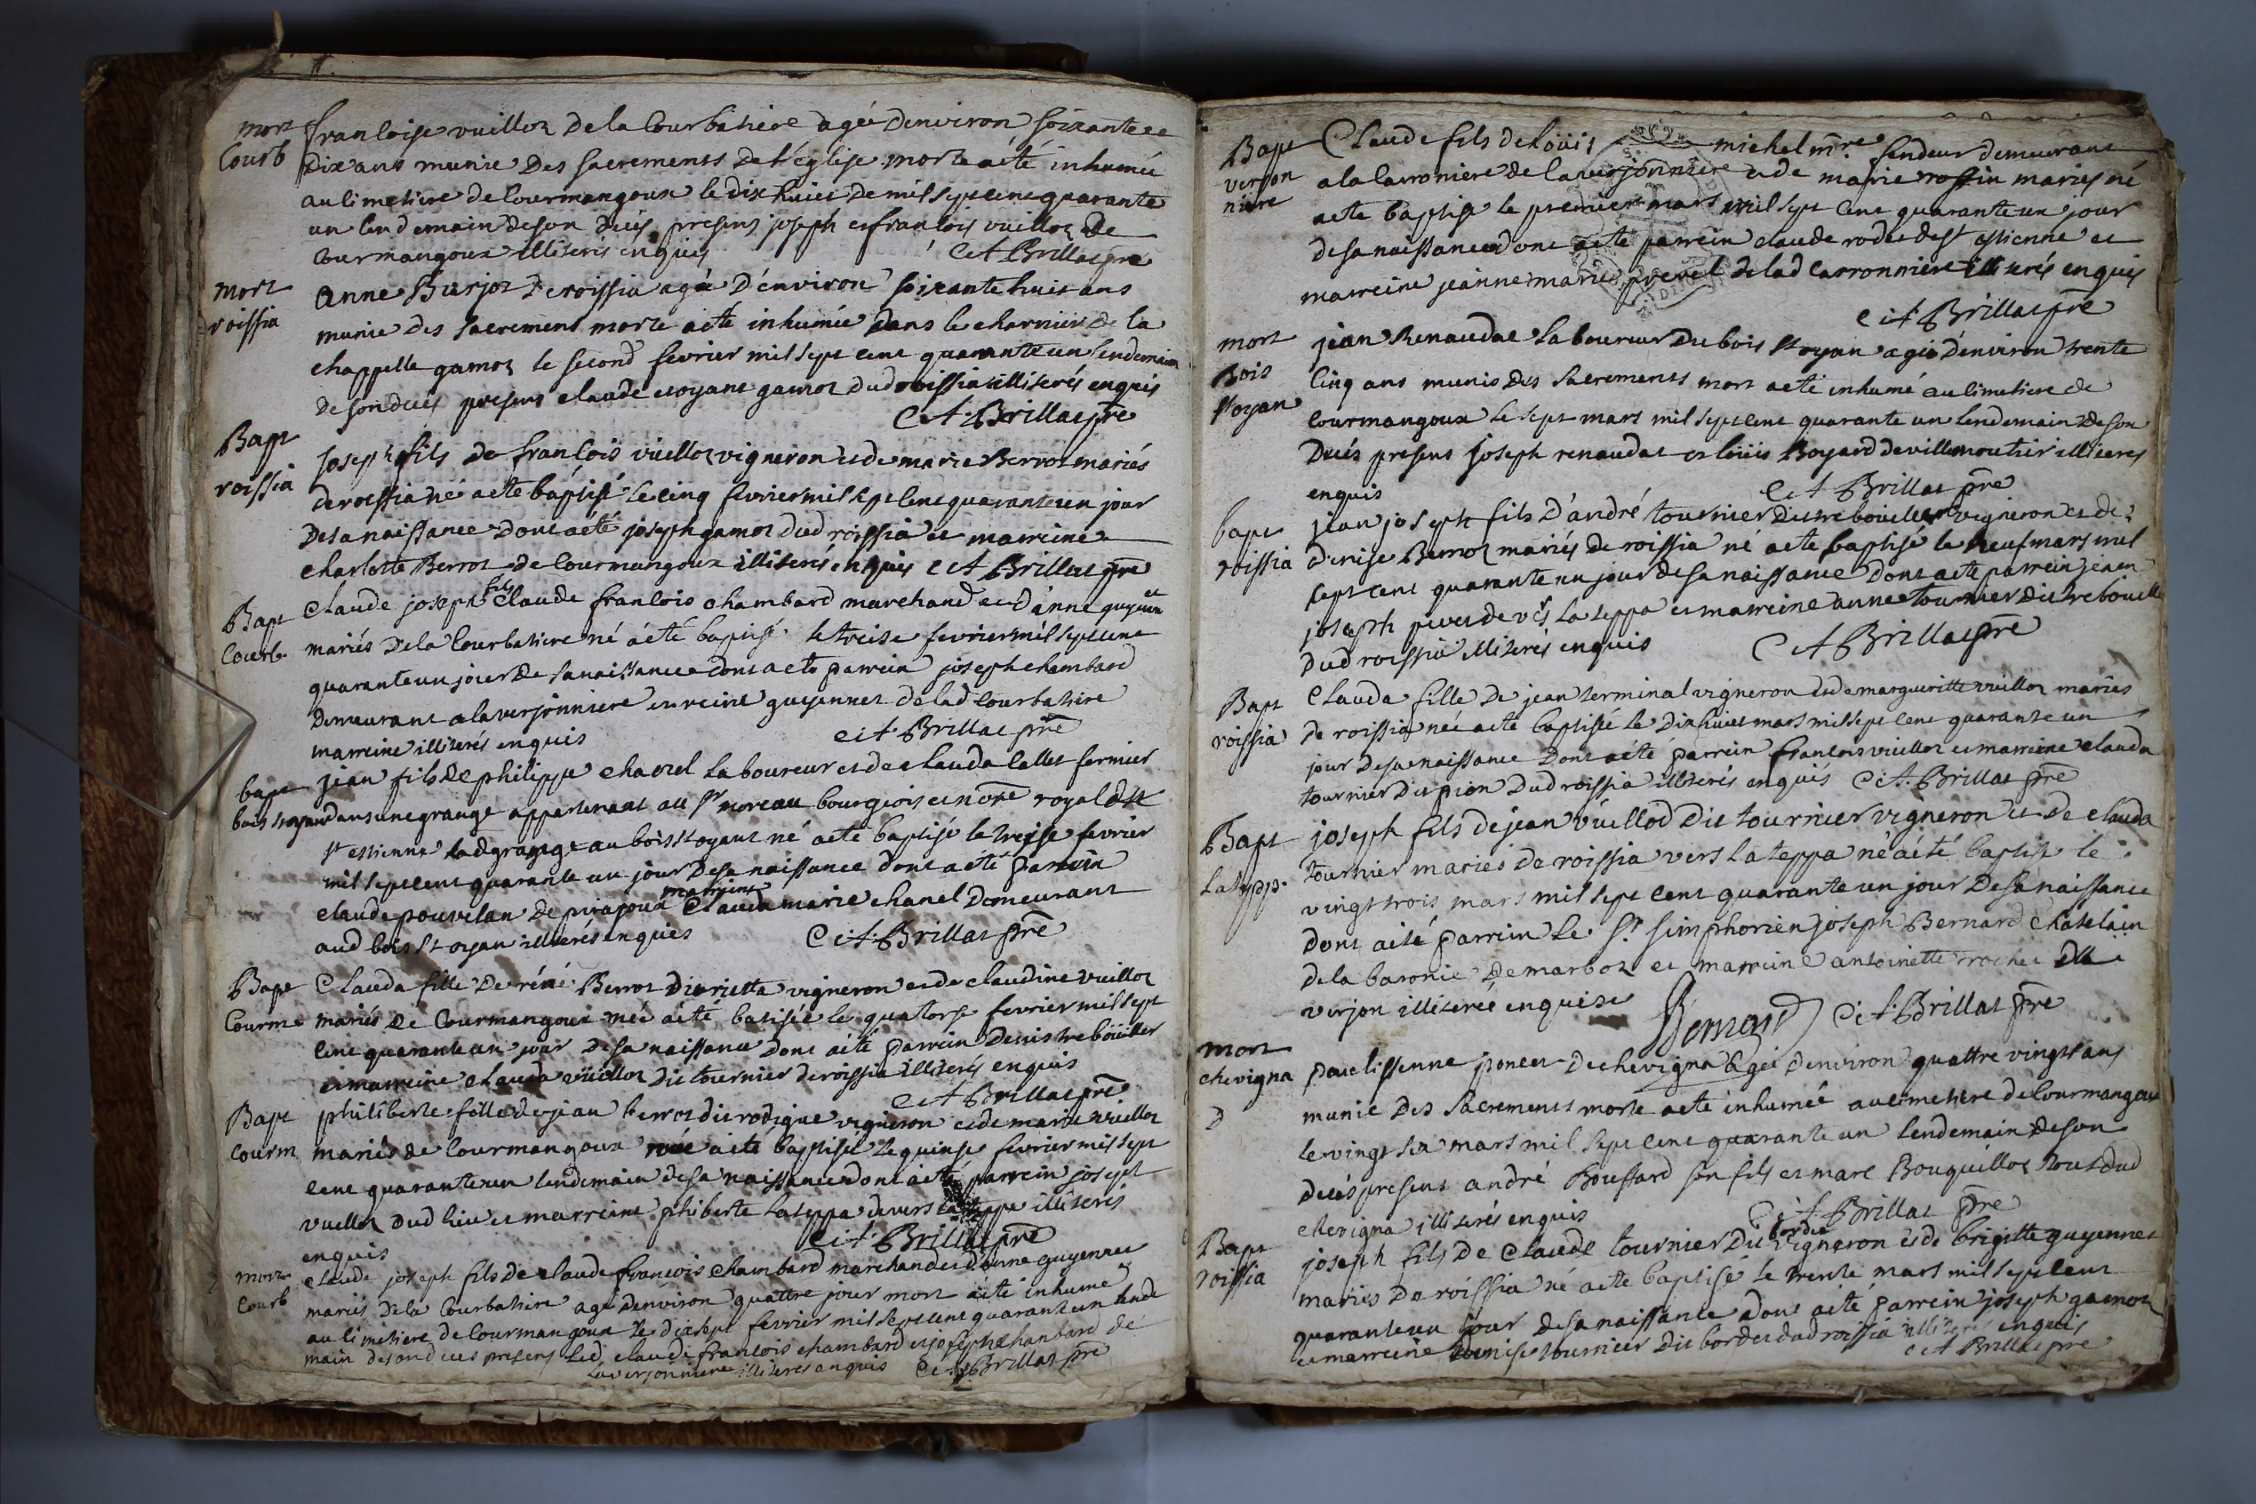 mort
Courb
francloise vuilloz De la Courbatiere agée d'environ soixante et
Dix ans munie Des sacrements de l'église morte a été inhumée
au limetiere de Courmangoux le dix huict de mil sept cent quarante
un lendemain de son decés presens joseph et francois vuilloz de
Courmangoux illiterés enquis C.A. Brillat pre
mort
roissia
Anne Burjoz de roissia agée d'environ soixante huit ans
munie des sacremens morte a été inhumée dans le charnier de la
chappelle gamoz le second fevrier mil sept cent quarante un lendemain
de son decés presens claude et oyant gamoz dud roissia illiterés enquis
C.A. Brillat pre
Bapt
roissia
joseph fils de francois vuilloz vigneron et de marie Berroz mariés
de roissia né a eté baptisé le cinq fevrier mil sept cent quarante un jour
de sa naissance dont a été joseph gamoz dud roissia et marreine
charlotte Berroz de Courmangoux illiterés enquis C.A. Brillat pre
Bapt
Courb.
Claude joseph fils Claude francois chambard marchand et d'anne guyennet
mariés de la Courbatiere né a été baptisé le treize fevrier mil sept cent
quarante un jour de sa naissance dont acte parrein joseph chambard
demeurant a la verjonniere et reine guyennet de lad Courbatiere
marreine illiterés enquis C.A. Brillat pre
bapt
bois st oyan
jean fils de philippe chanel laboureur et de clauda lallet fermier
dans une grange appartenant au sr moreau bourgeois et nore royal de
st estienne lad grange au bois st oyant né a eté baptisé le treise fevrier
mil sept cent quarante un jour de sa naissance dont a été parrein
claude pouvelan de pirajoux marreine Clauda marie chanel demeurant
aud bois st oyan illiterés enquis C.A. Brillat pre
Bapt
Courm
Clauda fille de réné Berroz dit rietta vigneron et de claudine vuilloz
mariés de Courmangoux née a été batisée le quatorse fevrier mil sept
cent quarante un jour de sa naissance dont a été parrein denis trebouillet
et marreine clauda vuilloz dit tournier de roissia illiterés enquis
C.A. Brillat pre
Bapt
Courm
philiberte fille de jean berroz dit rodigue vigneron et de marie vuilloz
mariés de Courmangoux née a été baptisée le quinse fevrier mil sept
cent quarante un lendemain de sa naissance dont a été parrein joseph
vuilloz dud lieu et marreine phiberte lateppa de vers lateppa illiterés
enquis C.A. Brillat pre
mort
Courb
Claude joseph fils de claude francois chambard marchand et d'anne guyennet
mariés de la Courbatiere agé d'environ quattre jour mort a été inhumé
au limetiere de Courmangoux le dix sept fevrier mil sept cent quarante un lende
main de son decés presens led claude francois chambard et joseph chambard de
la verjonniere illiterés enquis C.A. Brillat pre
Bapt
verjon
niere
Claude fils de Loüis michel mre fendeur demeurant
a la carroniere de la verjonniere et de marie roffin mariés né
a eté baptisé le premier mars mil sept cent quarante un jour
de sa naissance dont a eté parrein claude rodet de st estienne et
marreine jeanne marie prevel de lad carronniere illiterés enquis
C.A. Brillat pre
mort
Bois
st oyan
jean Renaudat laboureur du bois st oyan agé d'environ trente
cinq ans munis des sacrements mort a eté inhumé au limetiere de
Courmangoux le sept mars mil sept cent quarante un lendemain de son
decés presens joseph renaudat et loüis Boyard de villemoutier illiterés
enquis C.A. Brillat pre
bapt
roissia
jean joseph fils d'andré tournier dit trebouillet vigneron et de
denise Berroz mariés de roissia né a eté baptisé le neuf mars mil
sept cent quarante un jour de sa naissance dont a eté parrein jean
joseph de vers la teppa et marreine anne tournier dit trebouillet
dud roissia illiterés enquis C.A. Brillat pre
Bapt
roissia
Clauda fille de jean terminal vigneron et de margueritte vuilloz mariés
de roissia née a eté baptisée le dix huict mars mil sept cent quarante un
jour de sa naissance dont a été parrein francois vuilloz et marreine clauda
tournier dit pion dud roissia illiterés enquis C.A. Brillat pre
Bapt
Latepp.
joseph fils de jean vuillod dit tournier vigneron et de clauda
tournier mariés de roissia vers la teppa né a été baptisé le
vingt trois mars mil sept cent quarante un jour de sa naissance
dont a été parrein le Sr. simphorien joseph Bernard chatelain
de la baronie de marboz et marreine antoinette rochet de
verjon illiterée enquise Bernard C.A. Brillat pre
mort
chevigna
D
pauclissenne poncet de chevigna agée d'environ quattre vingt ans
munie des sacrements morte a eté inhumée au cimetiere de Courmangoux
le vingt six mars mil sept cent quarante un lendemain de son
decés presens andré Bouffard son fils et marc Bouquilloz tous dud
chevigna illiterés enquis C.A. Brillat pre
Bapt
roissia
joseph fils de Claude tournier dit bordet vigneron et de brigitte guyennet
mariés de roissia né a eté baptisé le trente mars mil sept cent
quarante un jour de sa naissance dont a été parrein joseph gamoz
et marreine denise tournier dit bordet dud roissia illiterés enquis
C.A. Brillat pre